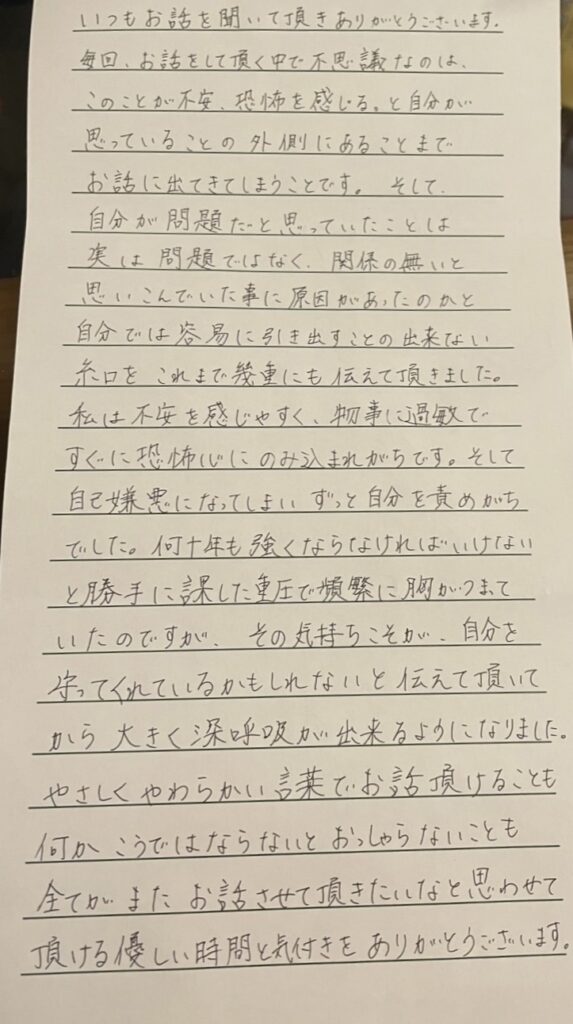 いつもお話を聞いて頂きありがとうございます。
毎回、お話をして頂く中で不思議なのは、
このことが不安、恐怖を感じる。と自分が
思っていることの外側にあることまで
お話に出てきてしまうことです。そして、
自分が問題だと思っていたことは
実は問題ではなく、関係の無いと
思いこんでいた事に原因があったのかと
自分では容易に引き出すことの出来ない
糸口をこれまで幾重にも伝えて頂きました。
私は不安を感じやすく、物事に過敏で
すぐに恐怖心にのみ込まれがちです。そして
自己嫌悪になってしまいずっと自分を責めがち
でした。何十年も強くならなければいけない
と勝手に課した重圧で頻繁に胸がつまって
いたのですが、その気持ちこそが、自分を
守ってくれているかもしれないと伝えて頂いて
から大きく深呼吸が出来るようになりました。
やさしくやわらかい言葉でお話頂けることも
何かこうではならないとおっしゃらないことも
全てがまたお話させて頂きたいなと思わせて
頂ける優しい時間と気付きをありがとうございます。